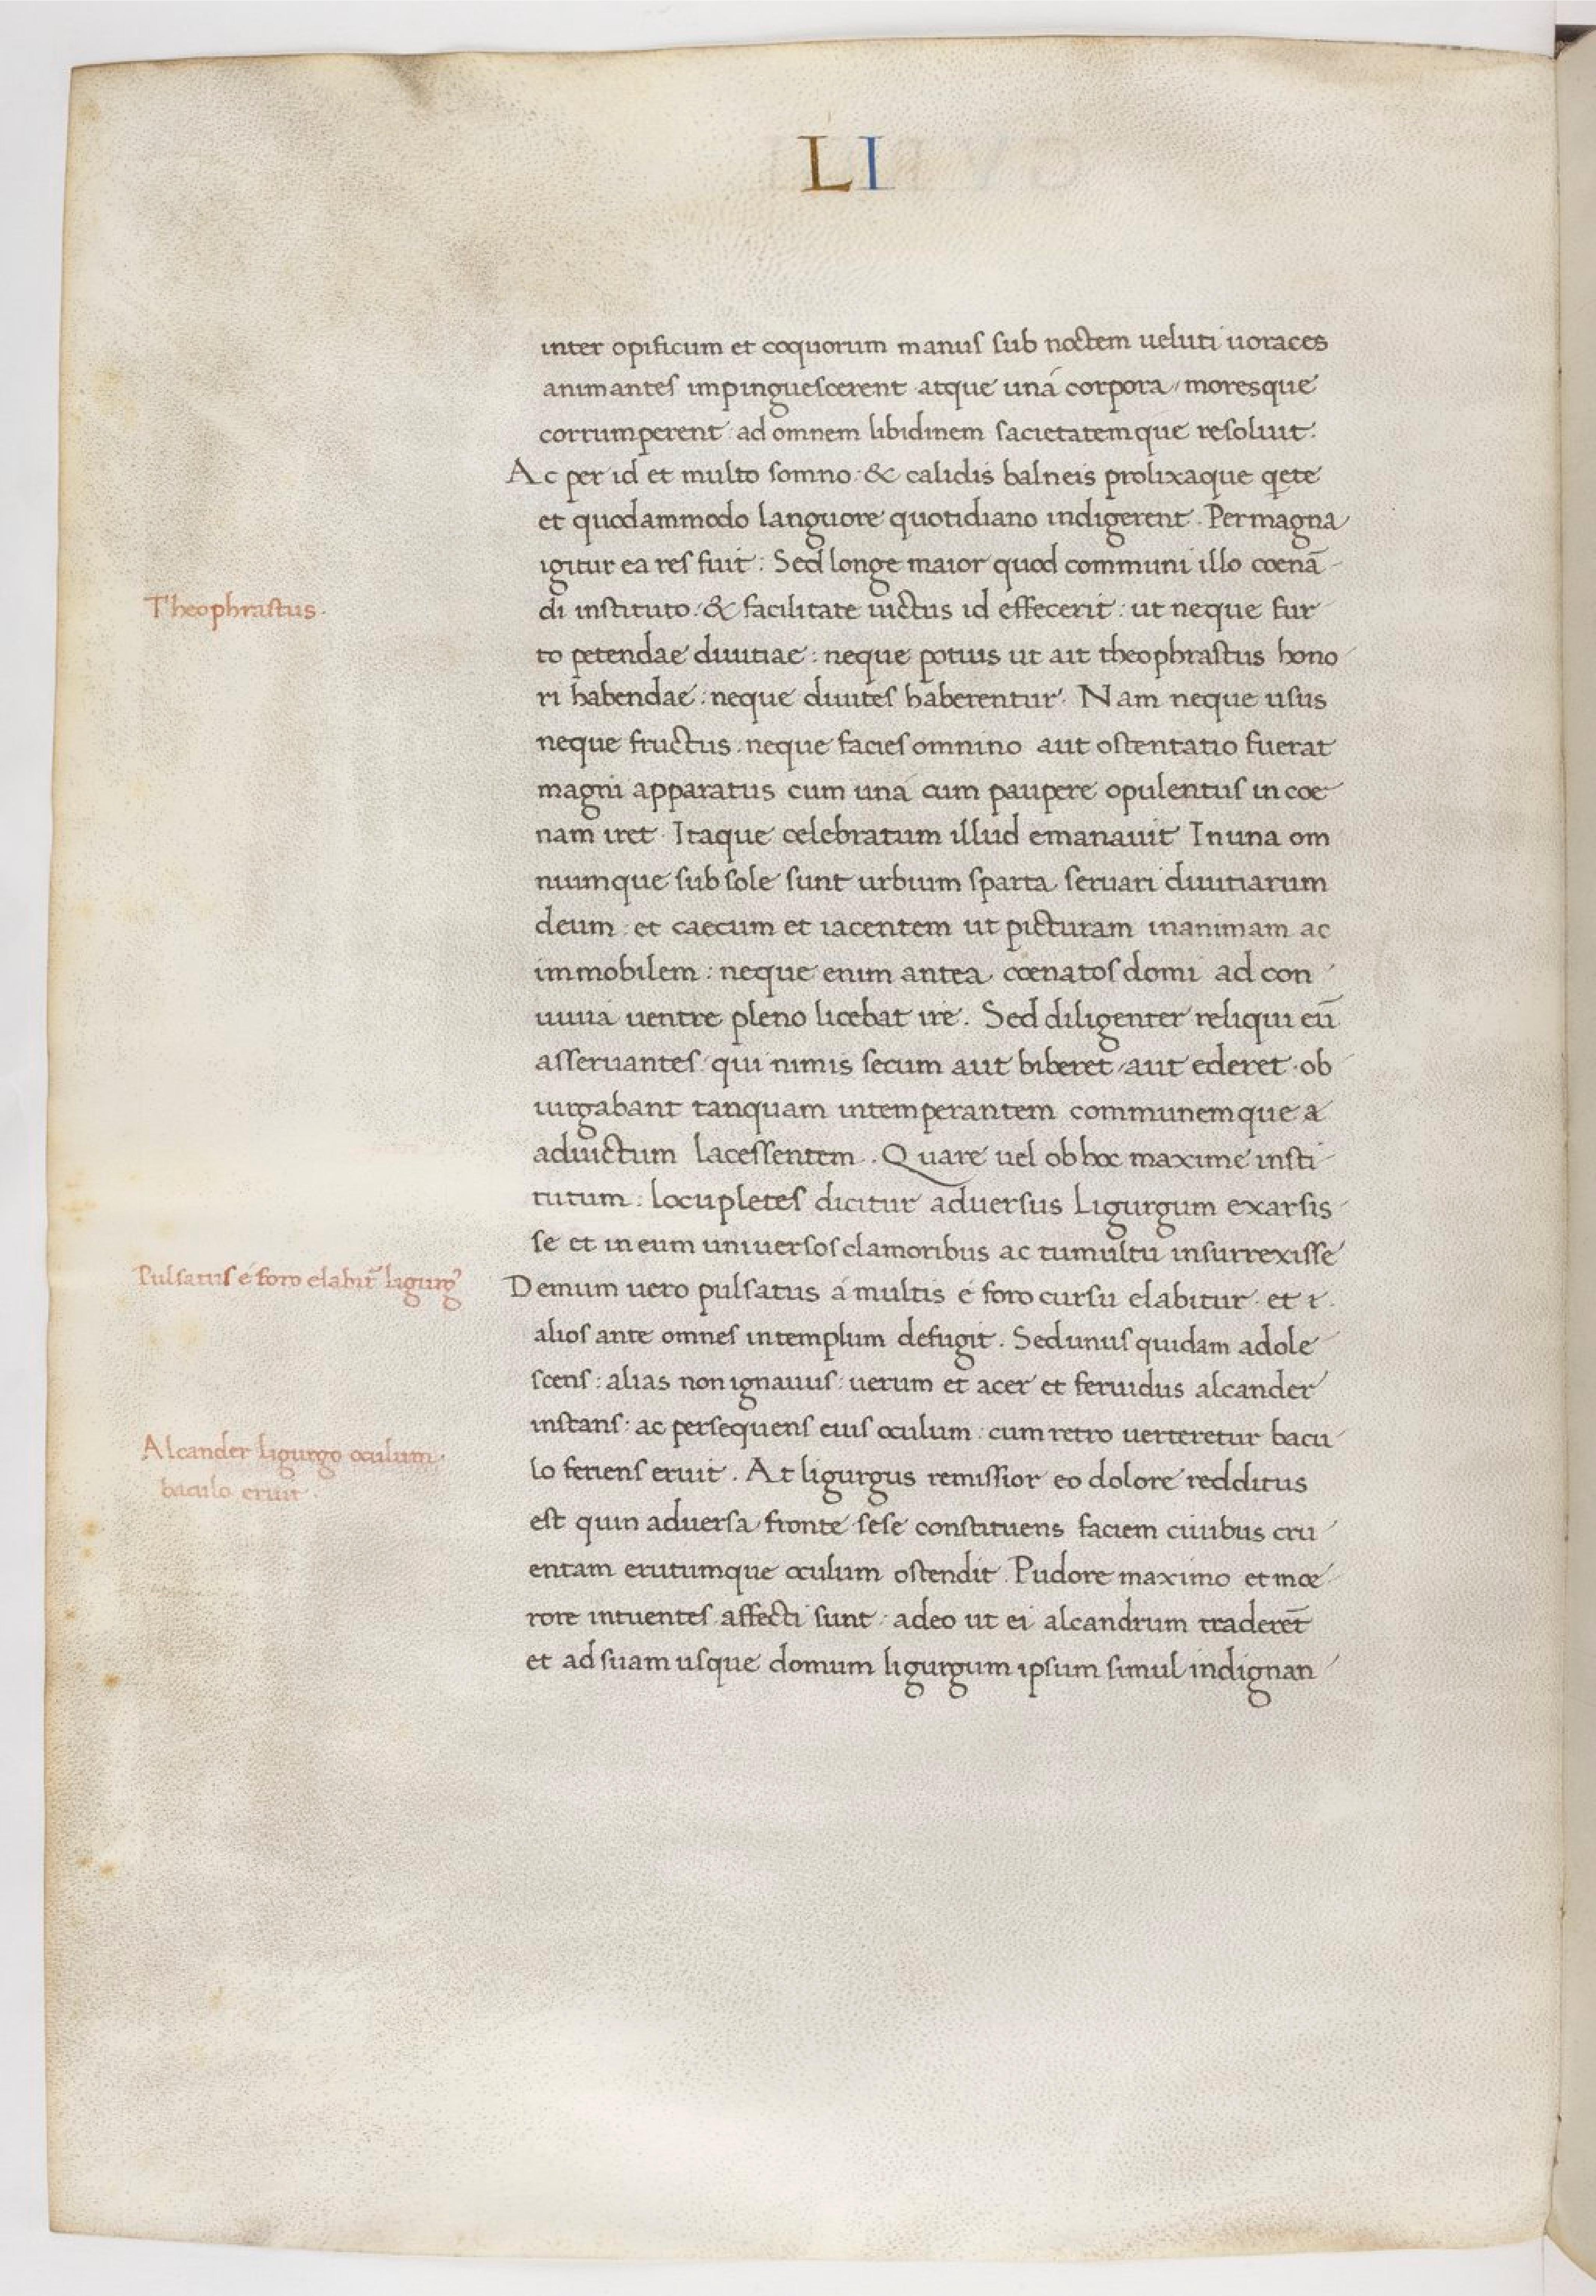 LI
inter opificum et coquorum manus sub noctem ueluti uoraces
animantes impinguescerent atque uná corpora, moresque
corrumperent: ad omnem libidinem sacietatemque resoluit:
Ac per id et multo somno: & calidis balneis prolixaque qete
et quodammodo languore quotidiano indigerent. Permagna
igitur ea res fuit: Sed longe maior quod communi illo coenā
Theophrastus.
di instituto: & facilitate uictus id effecerit: ut neque fur
to petendae diuitiae: neque potius ut ait theophrastus hono
ri habendae: neque diuites haberentur. Nam neque usus
neque fructus, neque facies omnino aut ostentatio fuerat
magni apparatus cum uná cum paupere opulentus in coe
nam iret. Itaque celebratum illud emanauit In una om
niumque sub sole sunt urbium sparta seruari diuitiarum
deum: et caecum et iacentem ut picturam inanimam ac
immobilem: neque enim antea coenatos domi ad con
uiuia uentre pleno licebat ire. Sed diligenter reliqui eū
asseruantes: qui nimis secum aut biberet, aut ederet. ob
uirgabant tanquam intemperantem communemque a
aduictum lacessentem. Quare uel ob hoc maxime insti
tutum: locupletes dicitur aduersus Ligurgum exarsis
se et in eum uniuersos clamoribus ac tumultu insurrexisse
Pulsatus é foro elabit̄ ligurg⁹
Demum uero pulsatus á multis é foro cursu elabitur. et
alios ante omnes in templum defugit. Sed unus quidam adole
scens: alias non ignauus: uerum et acer et feruidus alcander
instans: ac persequens eius oculum: cum retro uerteretur bacu
Alcander ligurgo oculum
baculo eruit.
lo feriens eruit. At ligurgus remissior eo dolore redditus
est quin aduersa fronte sese constituens faciem ciuibus cru
entam erutumque oculum ostendit. Pudore maximo et moe
rore intuentes affecti sunt: adeo ut ei alcandrum traderēt
et ad suam usque domum ligurgum ipsum simul indignan